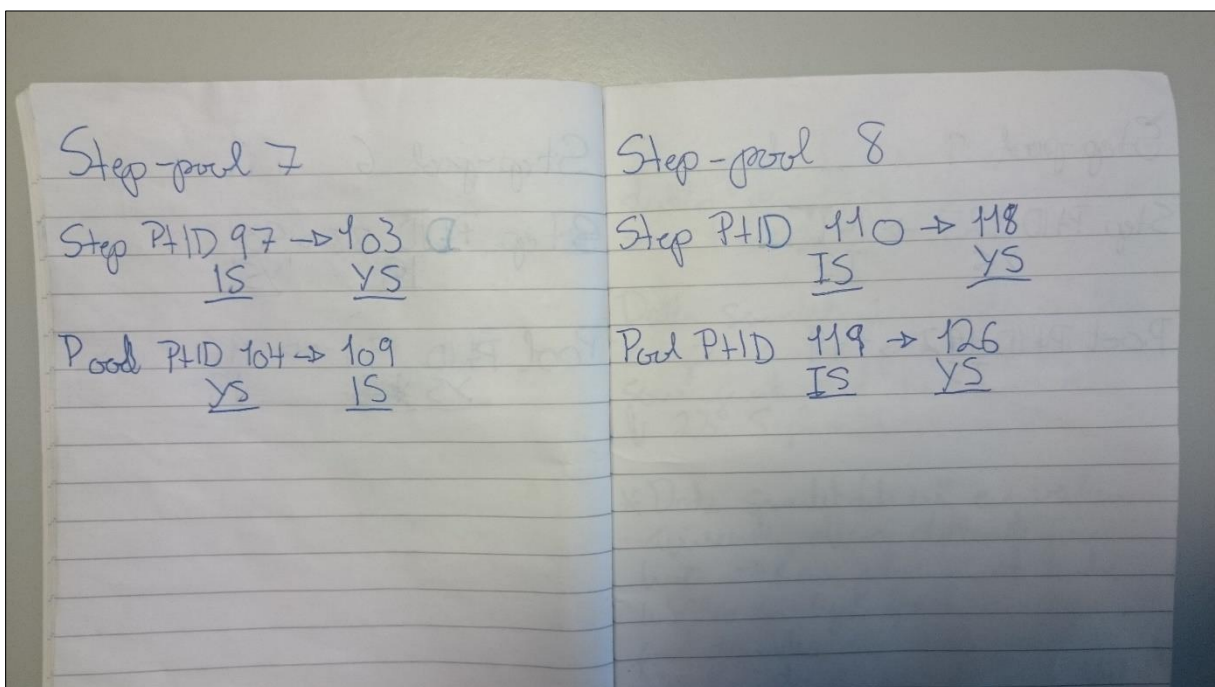 Step-pool 7
Step PtID 97 → 103
IS YS
Pool PtID 104 → 109
YS IS
Step-pool 8
Step PtID 110 → 118
IS YS
Pool PtID 119 → 126
IS YS